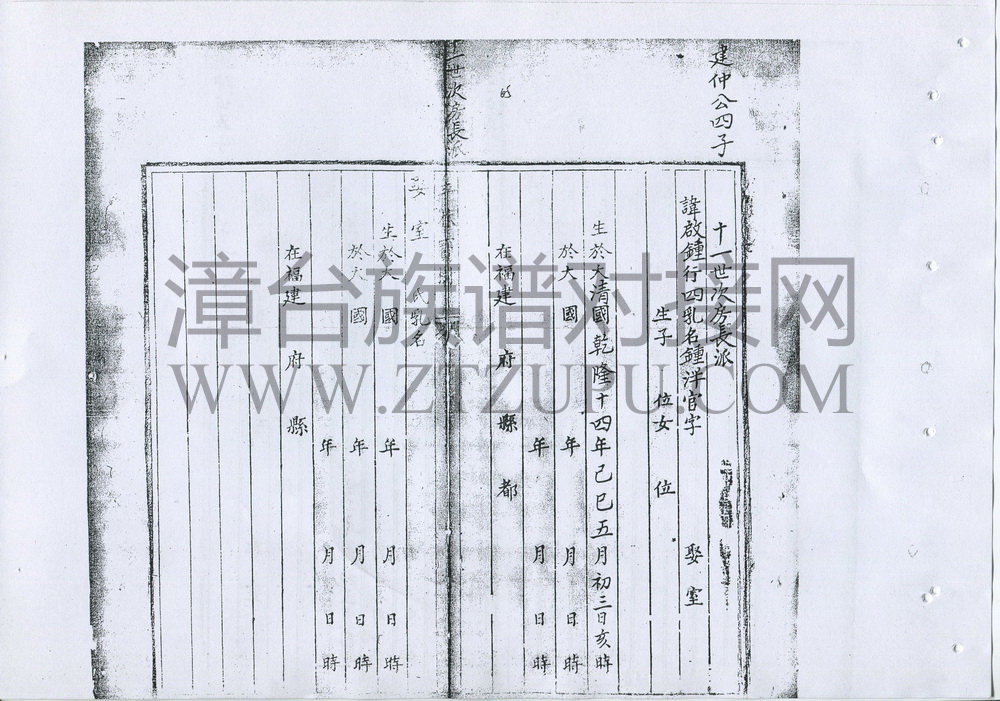 建仲公四子
十一世次房長派
諱啟鍾行四乳名鍾洋官字 娶室
生子 位女 位
生於大清國乾隆十四年己巳五月初三日亥時
於大 國 年 月 日 時
年 月 日 時
在福建 府 縣 都
十一世次房長派
娶 室 氏乳名
生於大 國 年 月 日 時
於大 國 年 月 日 時
年 月 日 時
在福建 府 縣
漳台族谱对接网
WWW.ZTZUPU.COM